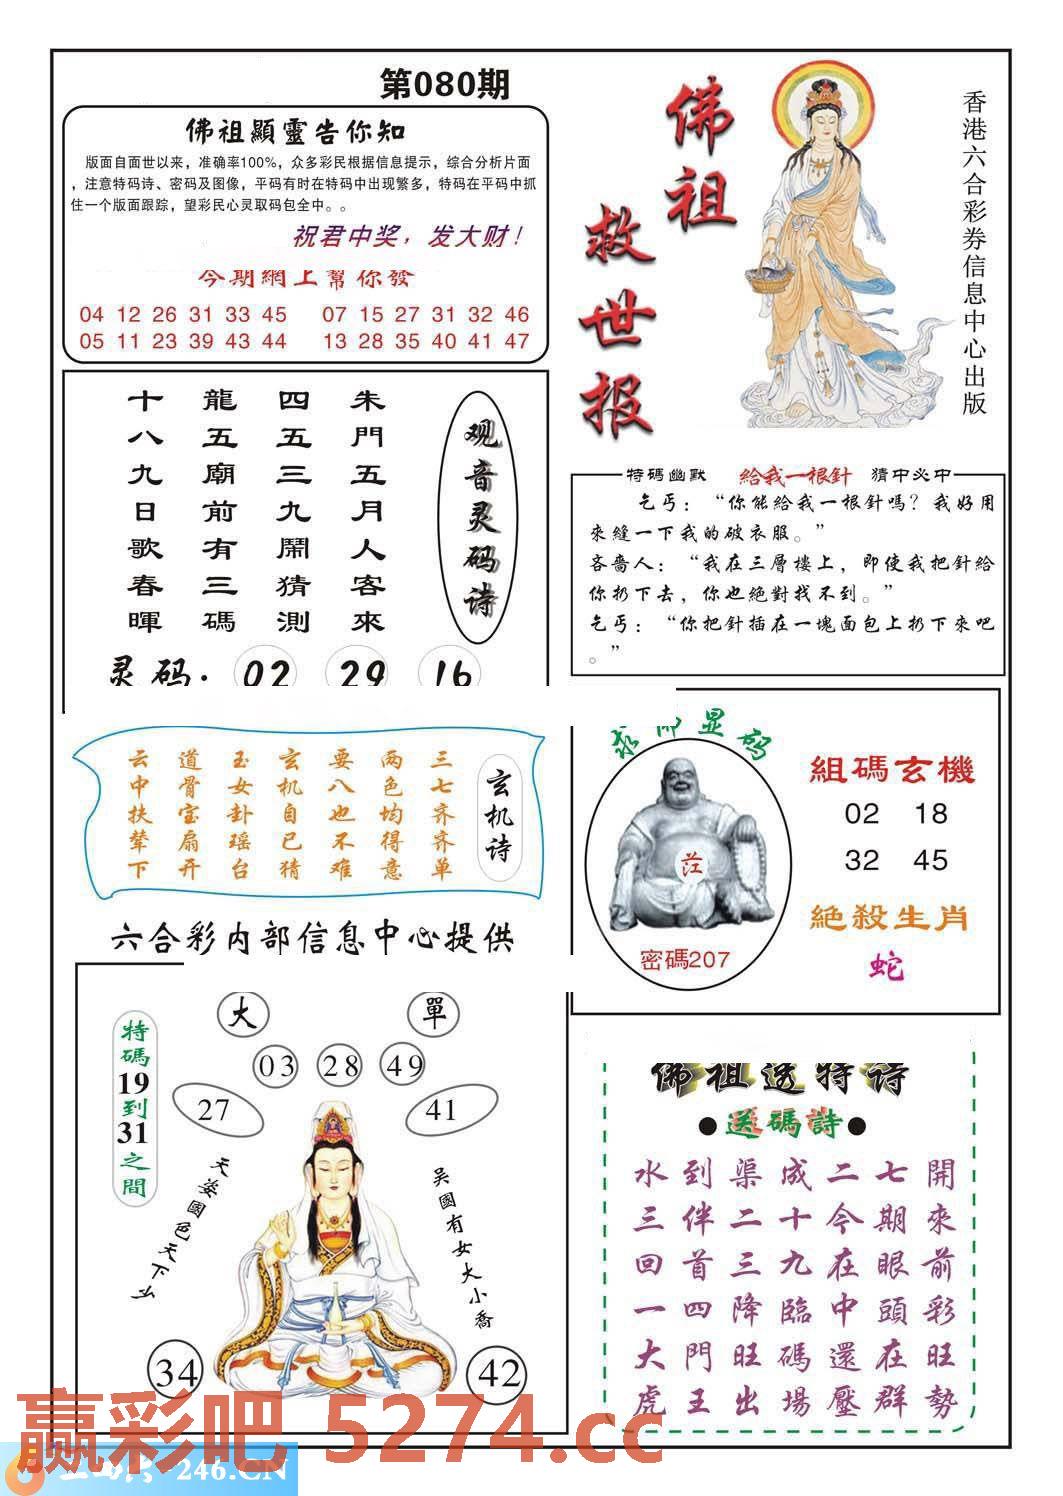 第080期
佛祖顯靈告你知
版面自面世以来，准确率100%，众多彩民根据信息提示，综合分析片面
，注意特码诗、密码及图像，平码有时在特码中出现繁多，特码在平码中抓
住一个版面跟踪，望彩民心灵取码包全中。。
祝君中奖，发大财！
今期網上幫你發
04 12 26 31 33 45 07 15 27 31 32 46
05 11 23 39 43 44 13 28 35 40 41 47
佛祖
救世报
香港六合彩券信息中心出版
观音灵码诗
朱門五月人客來
四五三九鬧猜測
龍五廟前有三碼
十八九日歌春暉
灵码： 02 29 16
特碼幽默 給我一根針 猜中必中
乞丐：“你能給我一根針嗎？我好用
來縫一下我的破衣服。”
吝嗇人：“我在三層樓上，即使我把針給
你扔下去，你也絕對找不到。”
乞丐：“你把針插在一塊面包上扔下來吧
。”
玄机诗
三七齐齐单
两色均得意
要八也不难
玄机自已猜
玉女卦瑶台
道骨宝扇开
云中扶辇下
六合彩内部信息中心提供
求佛显码
密碼207
組碼玄機
02 18
32 45
絕殺生肖
蛇
特碼19到31之間
大 單
03 28 49
27 41
天姿國色天下么
吴國有女大小喬
34 42
佛祖透特诗
●送碼詩●
水到渠成二七開
三伴二十今期來
回首三九在眼前
一四降臨中頭彩
大門旺碼還在旺
虎王出場壓群勢
赢彩吧 5274.cc
246.CN